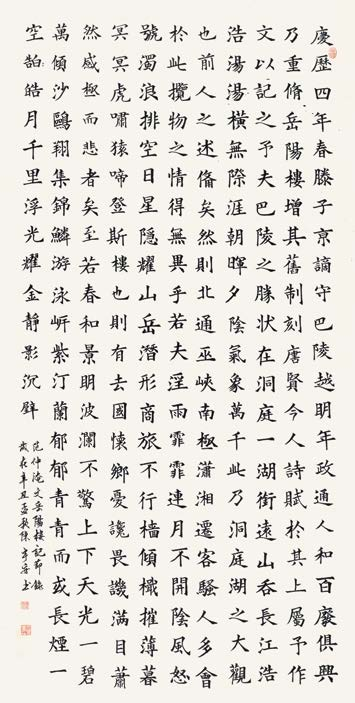 慶歷四年春滕子京謫守巴陵越明年政通人和百廢俱興
乃重脩岳陽樓增其舊制刻唐賢今人詩賦於其上屬予作
文以記之予夫巴陵之勝狀在洞庭一湖銜遠山吞長江浩
浩湯湯橫無際涯朝暉夕陰氣象萬千此乃洞庭湖之大觀
也前人之述俻矣然則北通巫峽南極瀟湘遷客騷人多會
於此攬物之情得無異乎若夫淫雨霏霏連月不開陰風怒
號濁浪排空日星隱耀山岳潛形商旅不行檣傾檝摧薄暮
冥冥虎嘯猿啼登斯樓也則有去國懷鄉憂讒畏譏滿目蕭
然感極而悲者矣至若春和景明波瀾不驚上下天光一碧
萬傾沙鷗翔集錦鱗游泳汀蘭郁郁青青而或長煙一
空皓月千里浮光耀金靜影沉璧
范仲淹文岳陽樓記節錄
歲在辛丑孟秋陳書